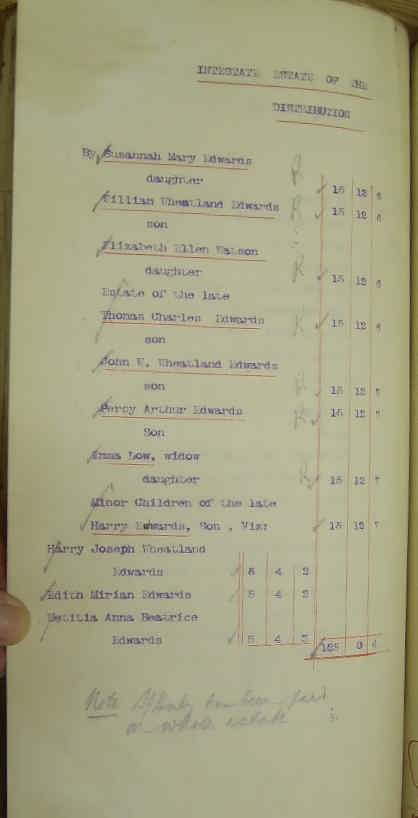 INTESTATE ESTATE OF THE
DISTRIBUTION
By Susannah Mary Edwards
daughter 15 12 6
William Wheatland Edwards 15 12 6
son
Elizabeth Ellen Watson
daughter 15 12 6
Estate of the late
Thomas Charles Edwards 15 12 6
son
John W. Wheatland Edwards
son 15 12 7
Percy Arthur Edwards 15 12 7
Son
Emma Low, widow
daughter 15 12 7
Minor Children of the late
Harry Edwards, Son , Viz: 15 12 7
Harry Joseph Wheatland
Edwards 5 4 2
Edith Mirian Edwards 5 4 2
Letitia Anna Beatrice
Edwards 5 4 2 125 0 4
Note has been paid
on whole estate